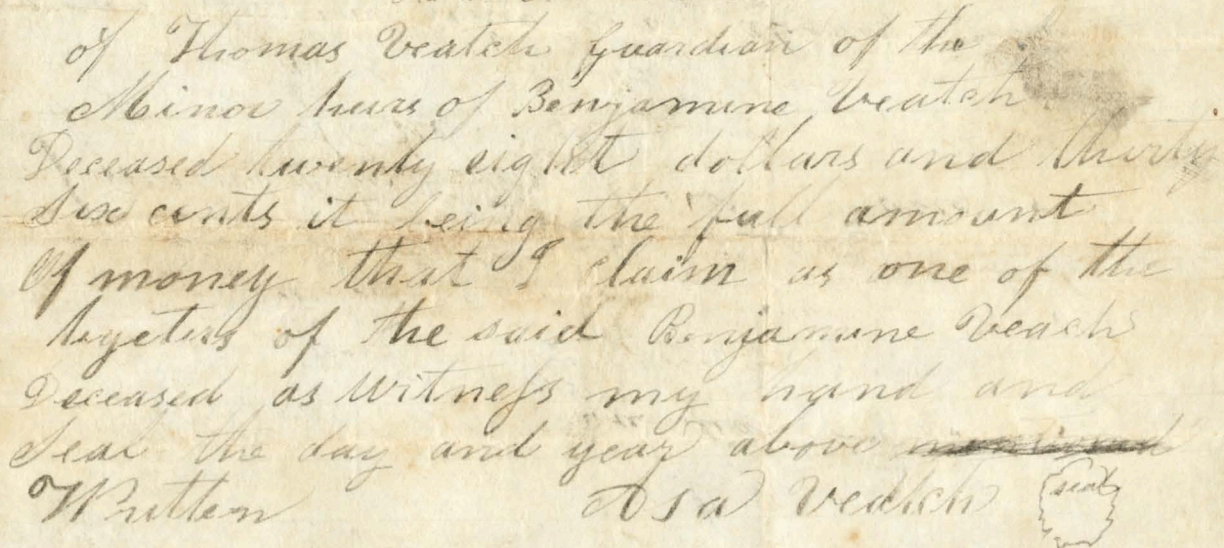 of Thomas Veatch guardian of the
Minor heirs of Benjamine Veatch
Deceased twenty eight dollars and thirty
Six cents it being the full amount
Of money that I claim as one of the
legeters of the said Benjamine Veach
Deceased as Witness my hand and
Seal the day and year above mentioned
Written Asa Veatch seal